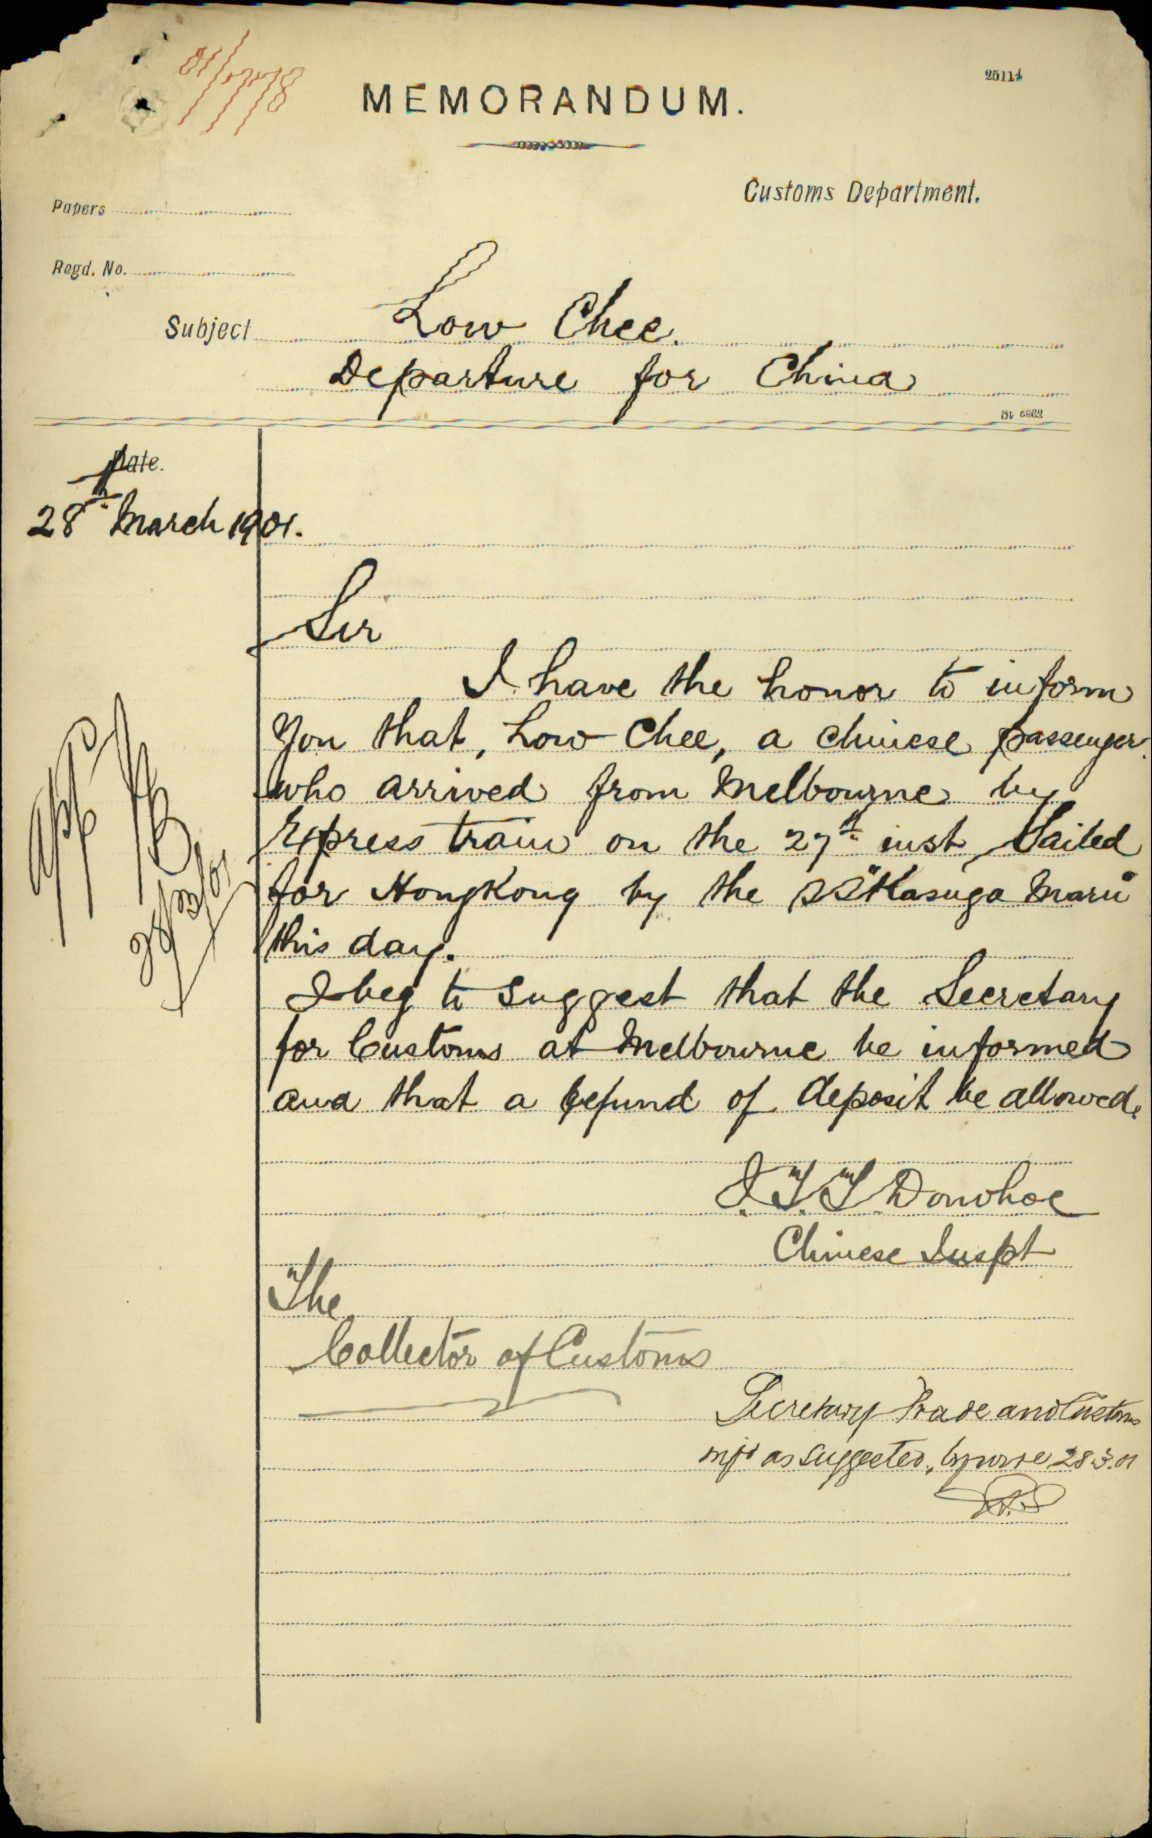 01/778
25114
MEMORANDUM.
Customs Department.
Papers
Regd. No.
Subject Low Chee.
Departure for China
Date.
28th March 1901.
Sir
I have the honor to inform
you that, Low Chee, a Chinese passenger
who arrived from Melbourne by
Express train on the 27th inst, Sailed
for Hong Kong by the SS "Kasuga Maru"
this day.
I beg to suggest that the Secretary
for Customs at Melbourne be informed
and that a refund of deposit be allowed.
J.T.T. Donohoe
Chinese Inspt
The
Collector of Customs
Secretary Trade and Customs
as suggested, 28.3.01
28/3/01